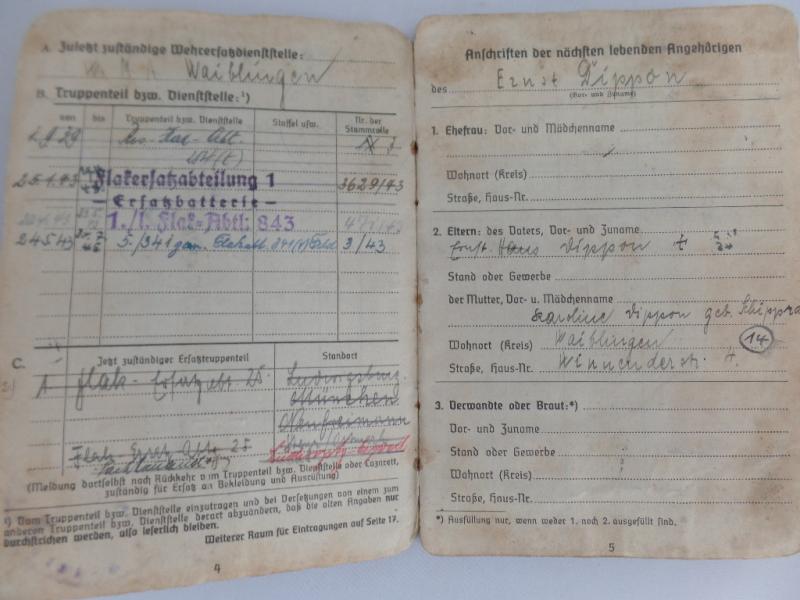 A. Zuletzt zuständige Wehrersatzdienststelle:
Waiblingen
B. Truppenteil bzw. Dienststelle:¹)
von bis Truppenteil bzw. Dienststelle Staffel usw. Nr. der Stammrolle
Flakersatzabteilung 1 3629/43
— Ersatzbatterie —
1./l. Flak-Abtl: 843
24.5.43 5./341 3/43
C. Jetzt zuständiger Ersatztruppenteil Standort
Flak-Ersatzabt. 25. Ludwigsburg
München
Neufreimann
Flak 25
(Meldung dortselbst nach Rückkehr v im Truppenteil bzw. Dienststelle oder Lazarett,
zuständig für Ersatz an Bekleidung und Ausrüstung)
¹) Vom Truppenteil bzw. Dienststelle einzutragen und bei Versetzungen von einem zum
anderen Truppenteil bzw. Dienststelle derart abzuändern, daß die alten Angaben nur
durchstrichen werden, also leserlich bleiben.
Weiterer Raum für Eintragungen auf Seite 17.
4
Anschriften der nächsten lebenden Angehörigen
des Ernst Dippon
(Vor- und Zuname)
1. Ehefrau: Vor- und Mädchenname
Wohnort (Kreis)
Straße, Haus-Nr.
2. Eltern: des Vaters, Vor- und Zuname
Ernst Dippon
Stand oder Gewerbe
der Mutter, Vor- u. Mädchenname
Karoline Dippon geb.
Wohnort (Kreis) Waiblingen 14
Straße, Haus-Nr. Winnenderstr. 4.
3. Verwandte oder Braut:*)
Vor- und Zuname
Stand oder Gewerbe
Wohnort (Kreis)
Straße, Haus-Nr.
*) Ausfüllung nur, wenn weder 1. noch 2. ausgefüllt sind.
5